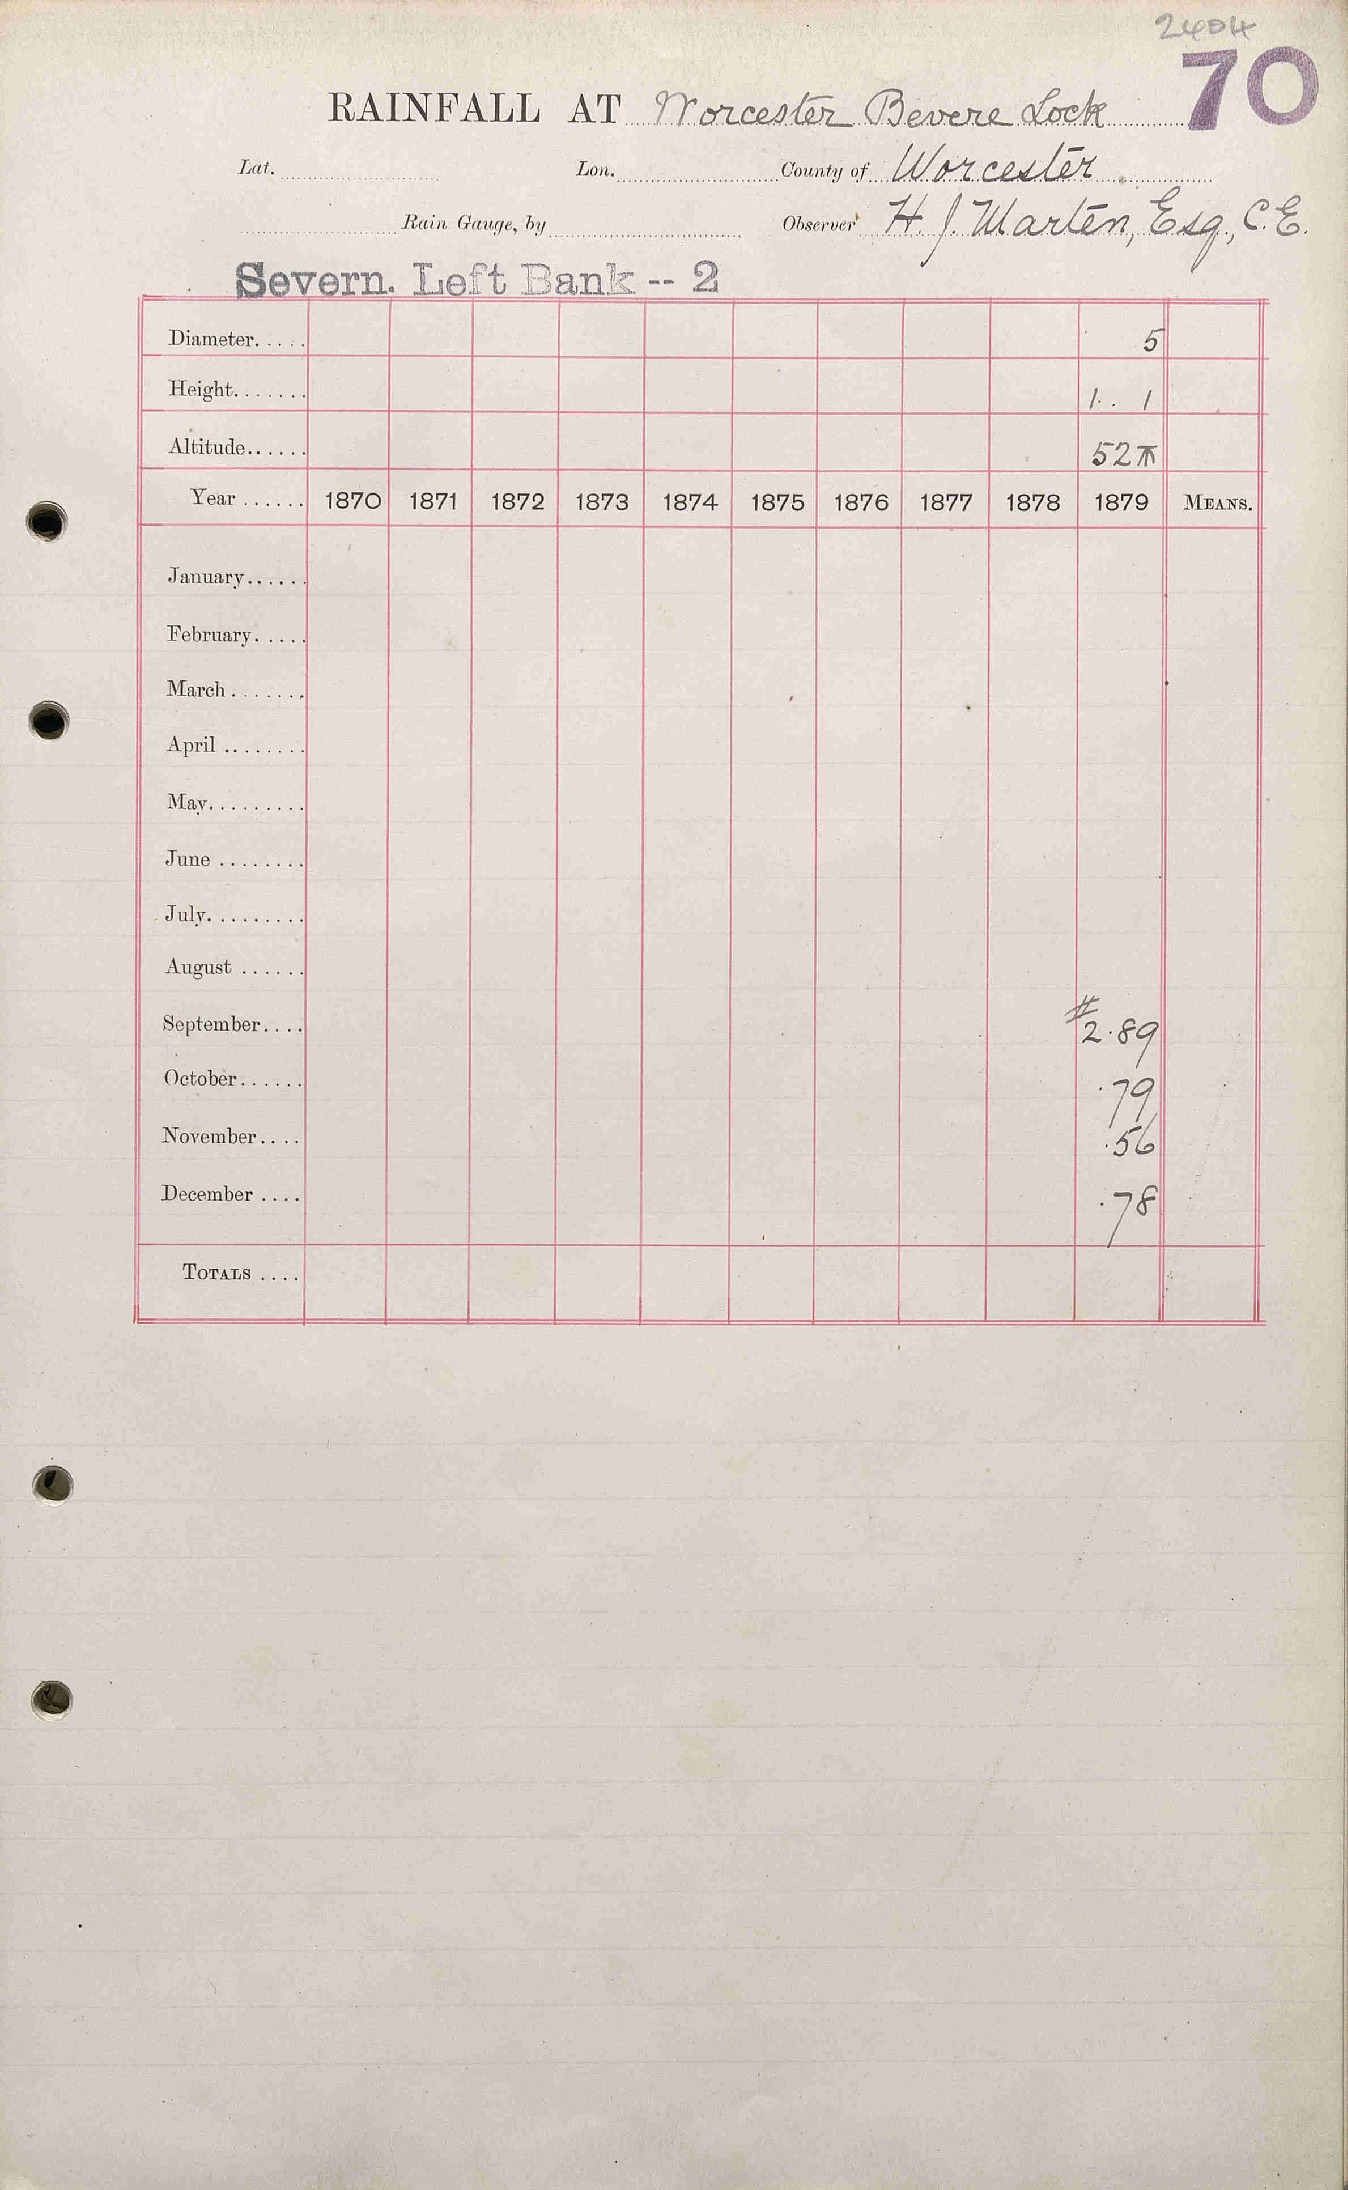 2404
70
RAINFALL AT Worcester Bevere Lock
Lat. Lon. County of Worcester
Rain Gauge, by Observer H. J. Marten, Esq., C.E.
Severn. Left Bank -- 2
Diameter..... 5
Height....... 1. 1
Altitude...... 52
Year ...... 1870 1871 1872 1873 1874 1875 1876 1877 1878 1879 MEANS.
January......
February.....
March.......
April ........
May.........
June ........
July.........
August ......
September.... # 2.89
October...... .79
November.... .56
December .... .78
TOTALS ....